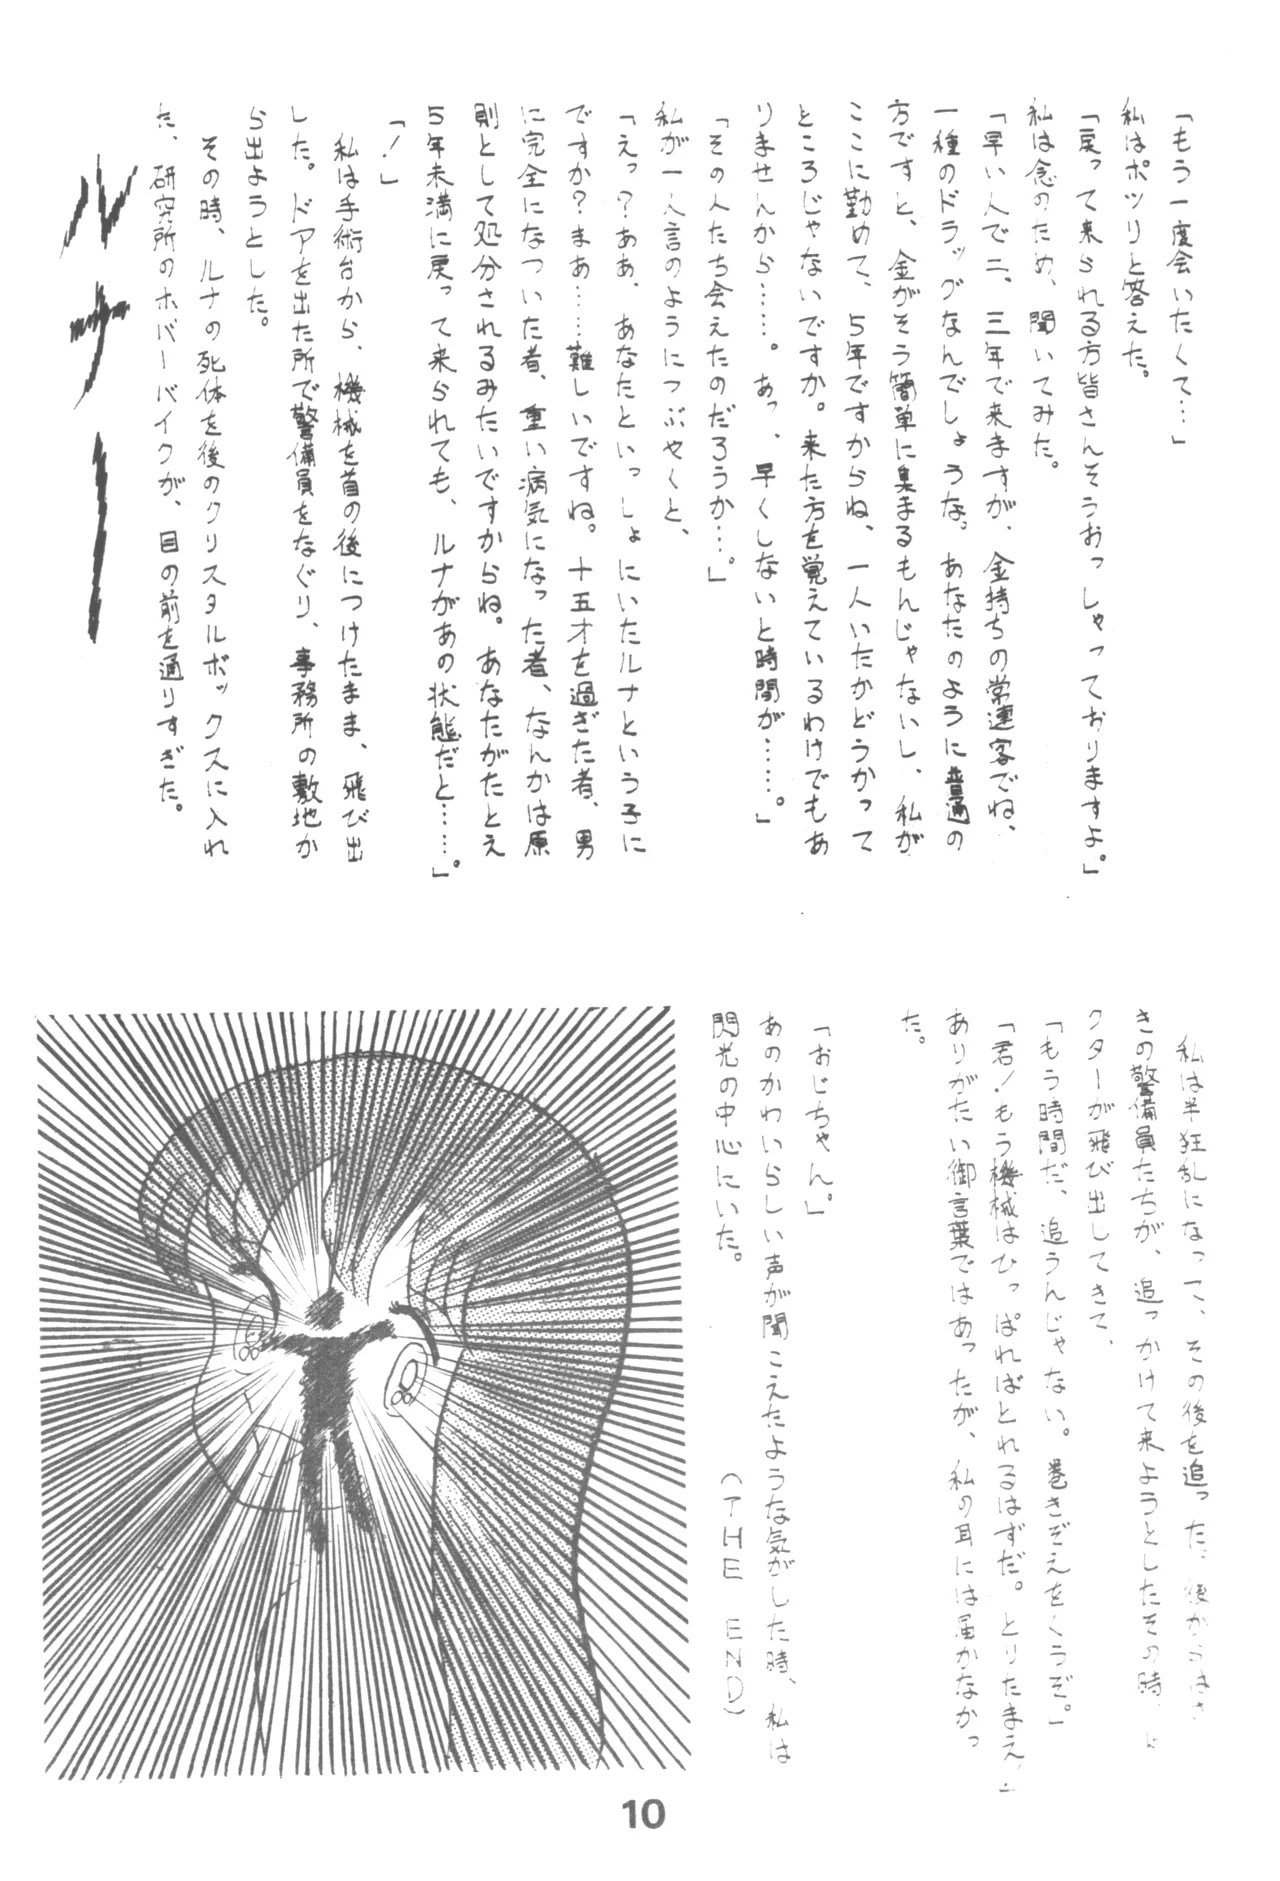 「もう一度会いたくて…」
私はポツリと答えた。
「戻って来られる方皆さんそうおっしゃっておりますよ。」
私は念のため、聞いてみた。
「早い人で二、三年で来ますが、金持ちの常連客でね、
一種のドラッグなんでしょうな。あなたのように普通の
方ですと、金がそう簡単に集まるもんじゃないし、私が
ここに勤めて、5年ですからね、一人いたかどうかって
ところじゃないですか。来た方を覚えているわけでもあ
りませんから……。あっ、早くしないと時間が……。」
「その人たち会えたのだろうか…。」
私が一人言のようにつぶやくと、
「えっ？ああ、あなたといっしょにいたルナという子に
ですか？まあ……難しいですね。十五才を過ぎた者、男
に完全になついた者、重い病気になった者、なんかは原
則として処分されるみたいですからね。あなたがたとえ
5年未満に戻って来られても、ルナがあの状態だと……。」
「！」
私は手術台から、機械を首の後につけたまま、飛び出
した。ドアを出た所で警備員をなぐり、事務所の敷地か
ら出ようとした。
その時、ルナの死体を後のクリスタルボックスに入れ
た、研究所のホバーバイクが、目の前を通りすぎた。
ルナー
私は半狂乱になって、その後を追った。後からはさ
きの警備員たちが、追っかけて来ようとしたその時、ド
クターが飛び出してきて、
「もう時間だ、追うんじゃない。巻きぞえをくうぞ。」
「君！もう機械はひっぱればとれるはずだ。とりたまえ！」
ありがたい御言葉ではあったが、私の耳には届かなかっ
た。
「おじちゃん。」
あのかわいらしい声が聞こえたような気がした時、私は
閃光の中心にいた。
（THE END）
10